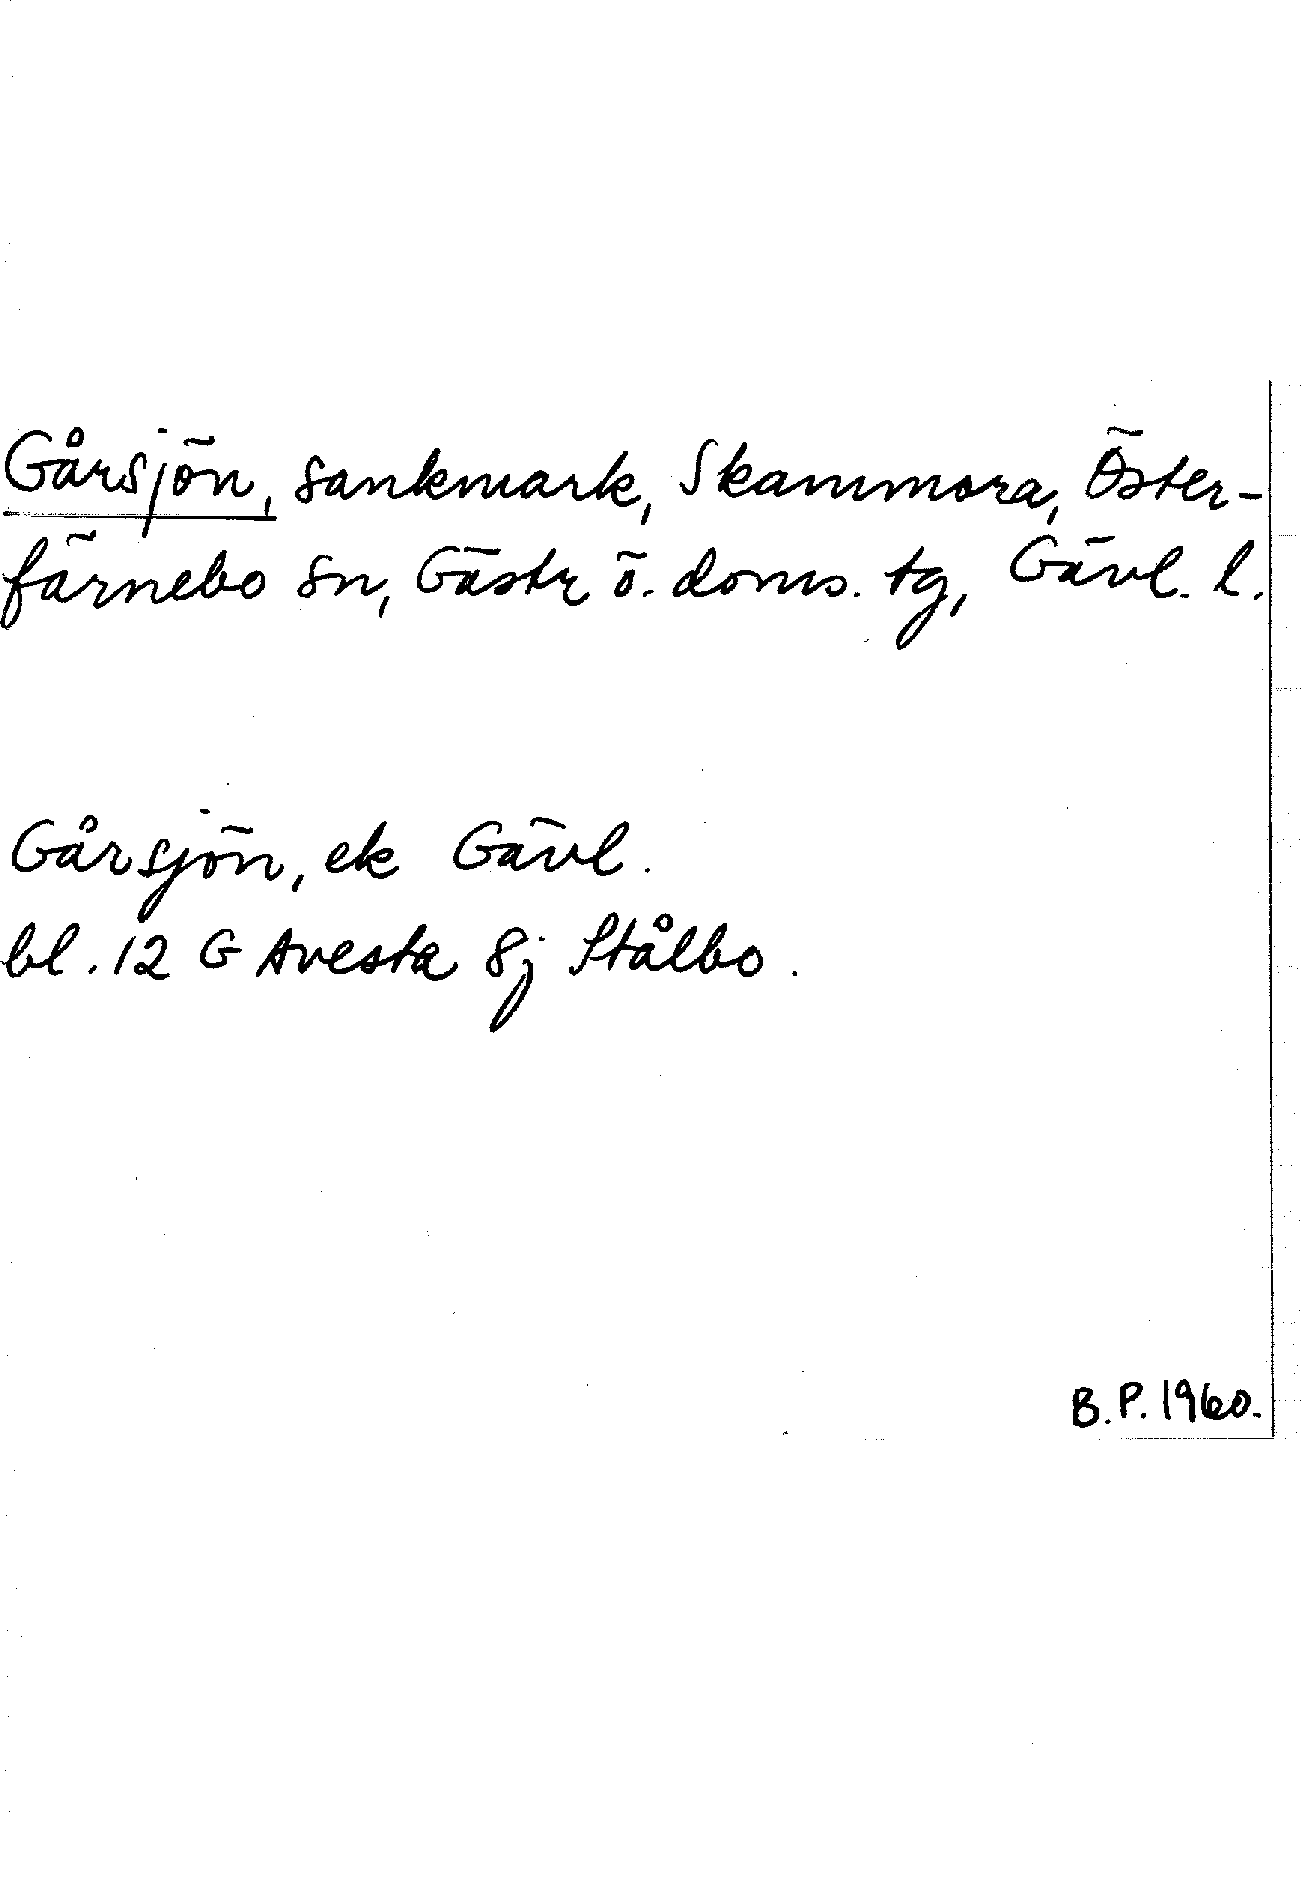 Gårsjön, sankmark, Skammora, Öster-
färnebo sn, Gästr ö. doms. tg, Gävl. l.
Gårsjön, ek Gävl.
bl. 12 G Avesta 8j Stålbo.
B.P. 1960.